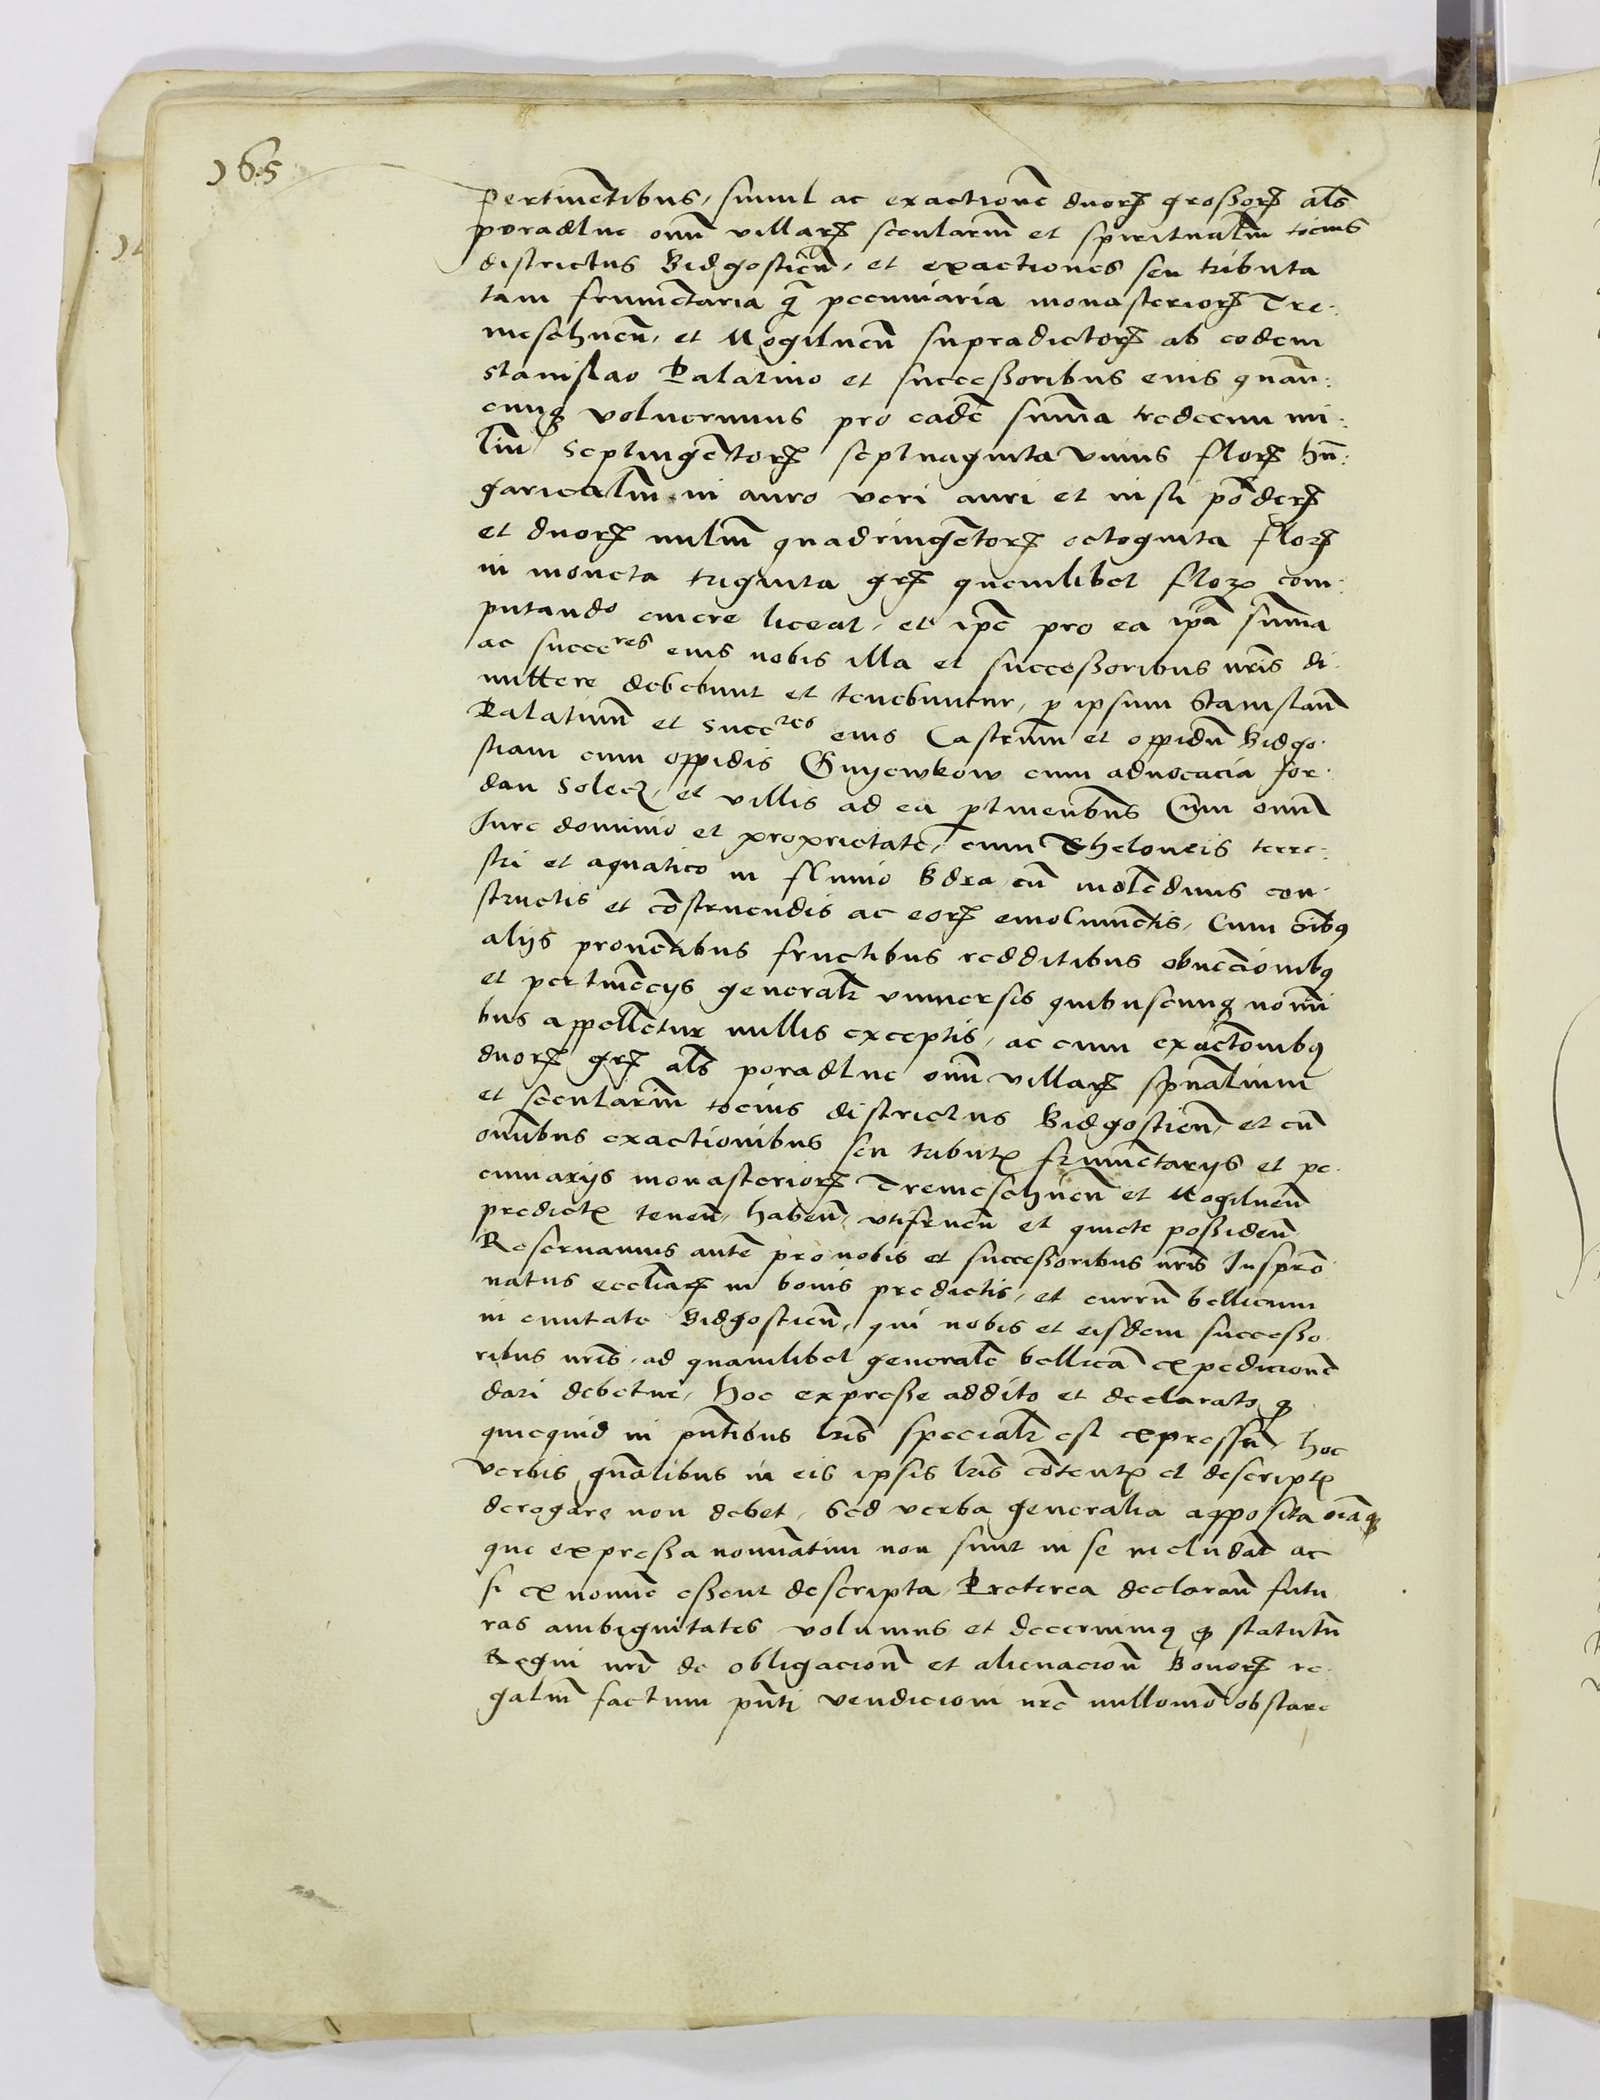 165
pertinẽtibus, simul ac exactionẽ duorꝝ großorꝝ als
poradlne om̃ villarꝝ secularium̃ et spiritualm̃ tocius
districtus Bidgostien̄, et exactiones seu tributa
tam frumẽtaria q̃ pecuniaria monasteriorꝝ Tre:
meschnen̄, et Mogilnen̄ supradictorꝝ ab eodem
Stanislao Palatino et succeßoribus eius quan̄:
cunqꝫ voluerimus pro eadẽ sum̃a tredecim mi:
lium̃ Septingẽtorꝝ septuaginta vnius florꝝ hn̄:
garicalm̃ in auro veri auri et iusti põderꝝ
et duorꝝ milium̃ quadringẽtorꝝ octoginta florꝝ
in moneta triginta grꝝ quemlibet flor com:
putando emere liceat, et ip̃e pro ea ip̃a sum̃a
ac succeres eius nobis illa et succeßoribus nr̃is di
mittere debebunt et tenebuntur, ꝑ ipsum Stanislaũ
Palatinũ et succres eius Castrum et oppidũ Bidgo:
stiam cum oppidis Gnyewkow cum aduocacia For:
dan Solecz, et villis ad ea ꝑtinentibus Cum omni
Jure dominio et proprietate, cum Theloneis terre:
stri et aquatico in fluuio Bdra cũ molẽdinis con:
structis et cõstruendis ac eorꝝ emolumẽtis, Cum oĩbꝯ
alijs prouẽtibus fructibus redditibus obuẽcionibꝯ
et pertinẽcijs generalr̃ vniuersis quibuscunqꝫ nomĩ
bus appellẽtur nullis exceptis, ac cum exactõnibꝯ
duorꝝ grꝝ als poradlne om̃ villarꝝ spũalium
et secularium̃ tocius districtus Bidgostien̄, et cũ
omĩbus exactionibus seu tributꝭ frumẽtarijs et pe:
cuniarijs monasteriorꝝ Tremeschnen̄ et Mogilnen̄
predictꝭ tenen̄, haben̄, vtifruen̄ et quiete poßiden̄
Reseruamus autẽ pro nobis et succeßoribus nr̃is Juspr̃o
natus eccliarꝝ in bonis predictis, et currũ bellicum
in ciuitate Bidgostien̄, qui nobis et eisdem succeßo
ribus nr̃is, ad quamlibet generalẽ bellicã expedicionẽ
dari debetur, hoc expreße addito et declarato, qꝫ
quicquid in pñtibus lr̃is specialr̃ est expressũ, hoc
verbis gñalibus in eis ipsis lr̃is cõtentꝭ et descriptꝭ
derogare non debet, Sed verba generalia apposita oĩaqꝫ
que expreßa nominatim non sunt in se includãt ac
si ex nomine eßent descripta, Preterea declaran̄ futu
ras ambiguitates volumus et decernimꝯ qꝫ statutũ
Regni nr̃i de obligacion̄ et alienacion̄ Bonorꝝ re:
galiũ factum pñti vendicioni nr̃e nullomõ obstare